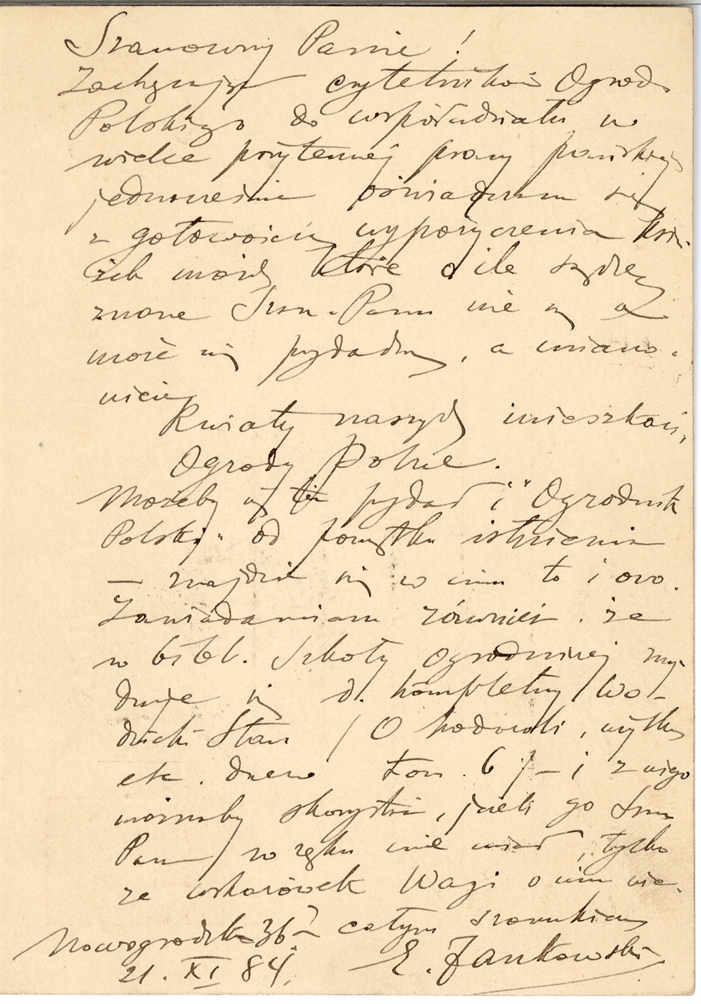 Szanowny Panie!
Zachęcając czytelników Ogrod.
Polskiego do współudziału w
wielce pożytecznej pracy pańskiej
jednocześnie oświadczam się
z gotowością wypożyczenia ksią-
żek moich które o ile są dziś
znane Szan. Panu nie są a
może się przydadzą, a miano-
wicie
Kwiaty naszych mieszkań,
Ogrody Polne.
Możeby się też przydał i "Ogrodnik
Polski" od początku istnienia
— znajdzie się w nim to i owo.
Zawiadamiam również że
w bibl. Szkoły ogrodniczej znaj-
duje się d. kompletny Wo-
dzicki Stan / O hodowli, użytku
etc. drzew tom. 6 / — i z niego
możnaby skorzystać, jeśli go Szan
Pan w ręku nie miał, tylko
ze wskazówek Wagi o nim wie.
Nowogrodzka 36. z całym szacunkiem
21. XI 84. E. Jankowski